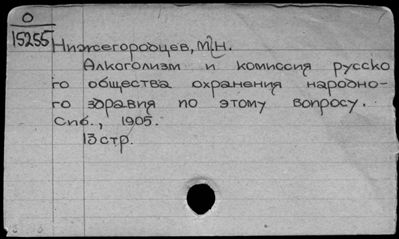 О
15255
Нижегородцев, М.Н.
Алкоголизм и комиссия русско
го общества охранения народно-
го здравия по этому вопросу.
Спб., 1905.
13 стр.